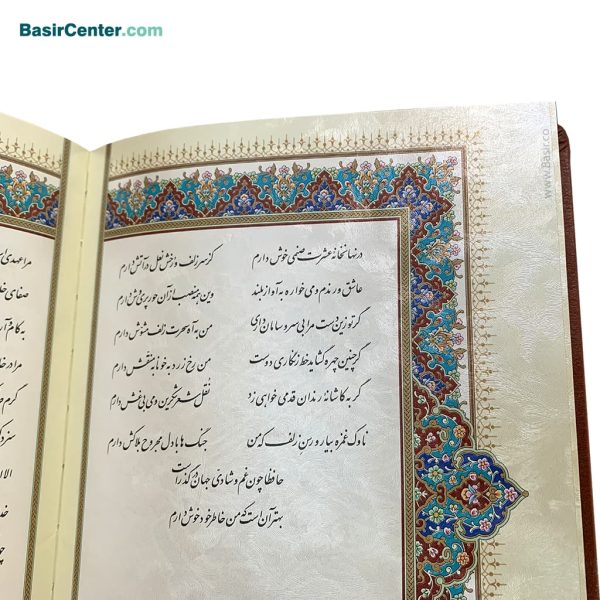 BasirCenter.com
www.Basir.co
در نهانخانهٔ عشرت صنمی خوش دارم
کز سر زلف و رخش نعل در آتش دارم
عاشق و رندم و می خواره به آواز بلند
وین همه منصب از آن حور پری وش دارم
گر تو زین دست مرا بی سر و سامان داری
من به آه سحرت زلف مشوش دارم
گر چنین چهره گشاید خط زنگاری دوست
من رخ زرد به خونابه منقش دارم
گر به کاشانهٔ رندان قدمی خواهی زد
نقل شعر شکرین و می بی غش دارم
ناوک غمزه بیار و رسن زلف که من
جنگ ها با دل مجروح بلاکش دارم
حافظا چون غم و شادی جهان در گذر است
بهتر آن است که من خاطر خود خوش دارم
مرا عهدی
صفای
به کام
مرا در
گرم
سزد
الا